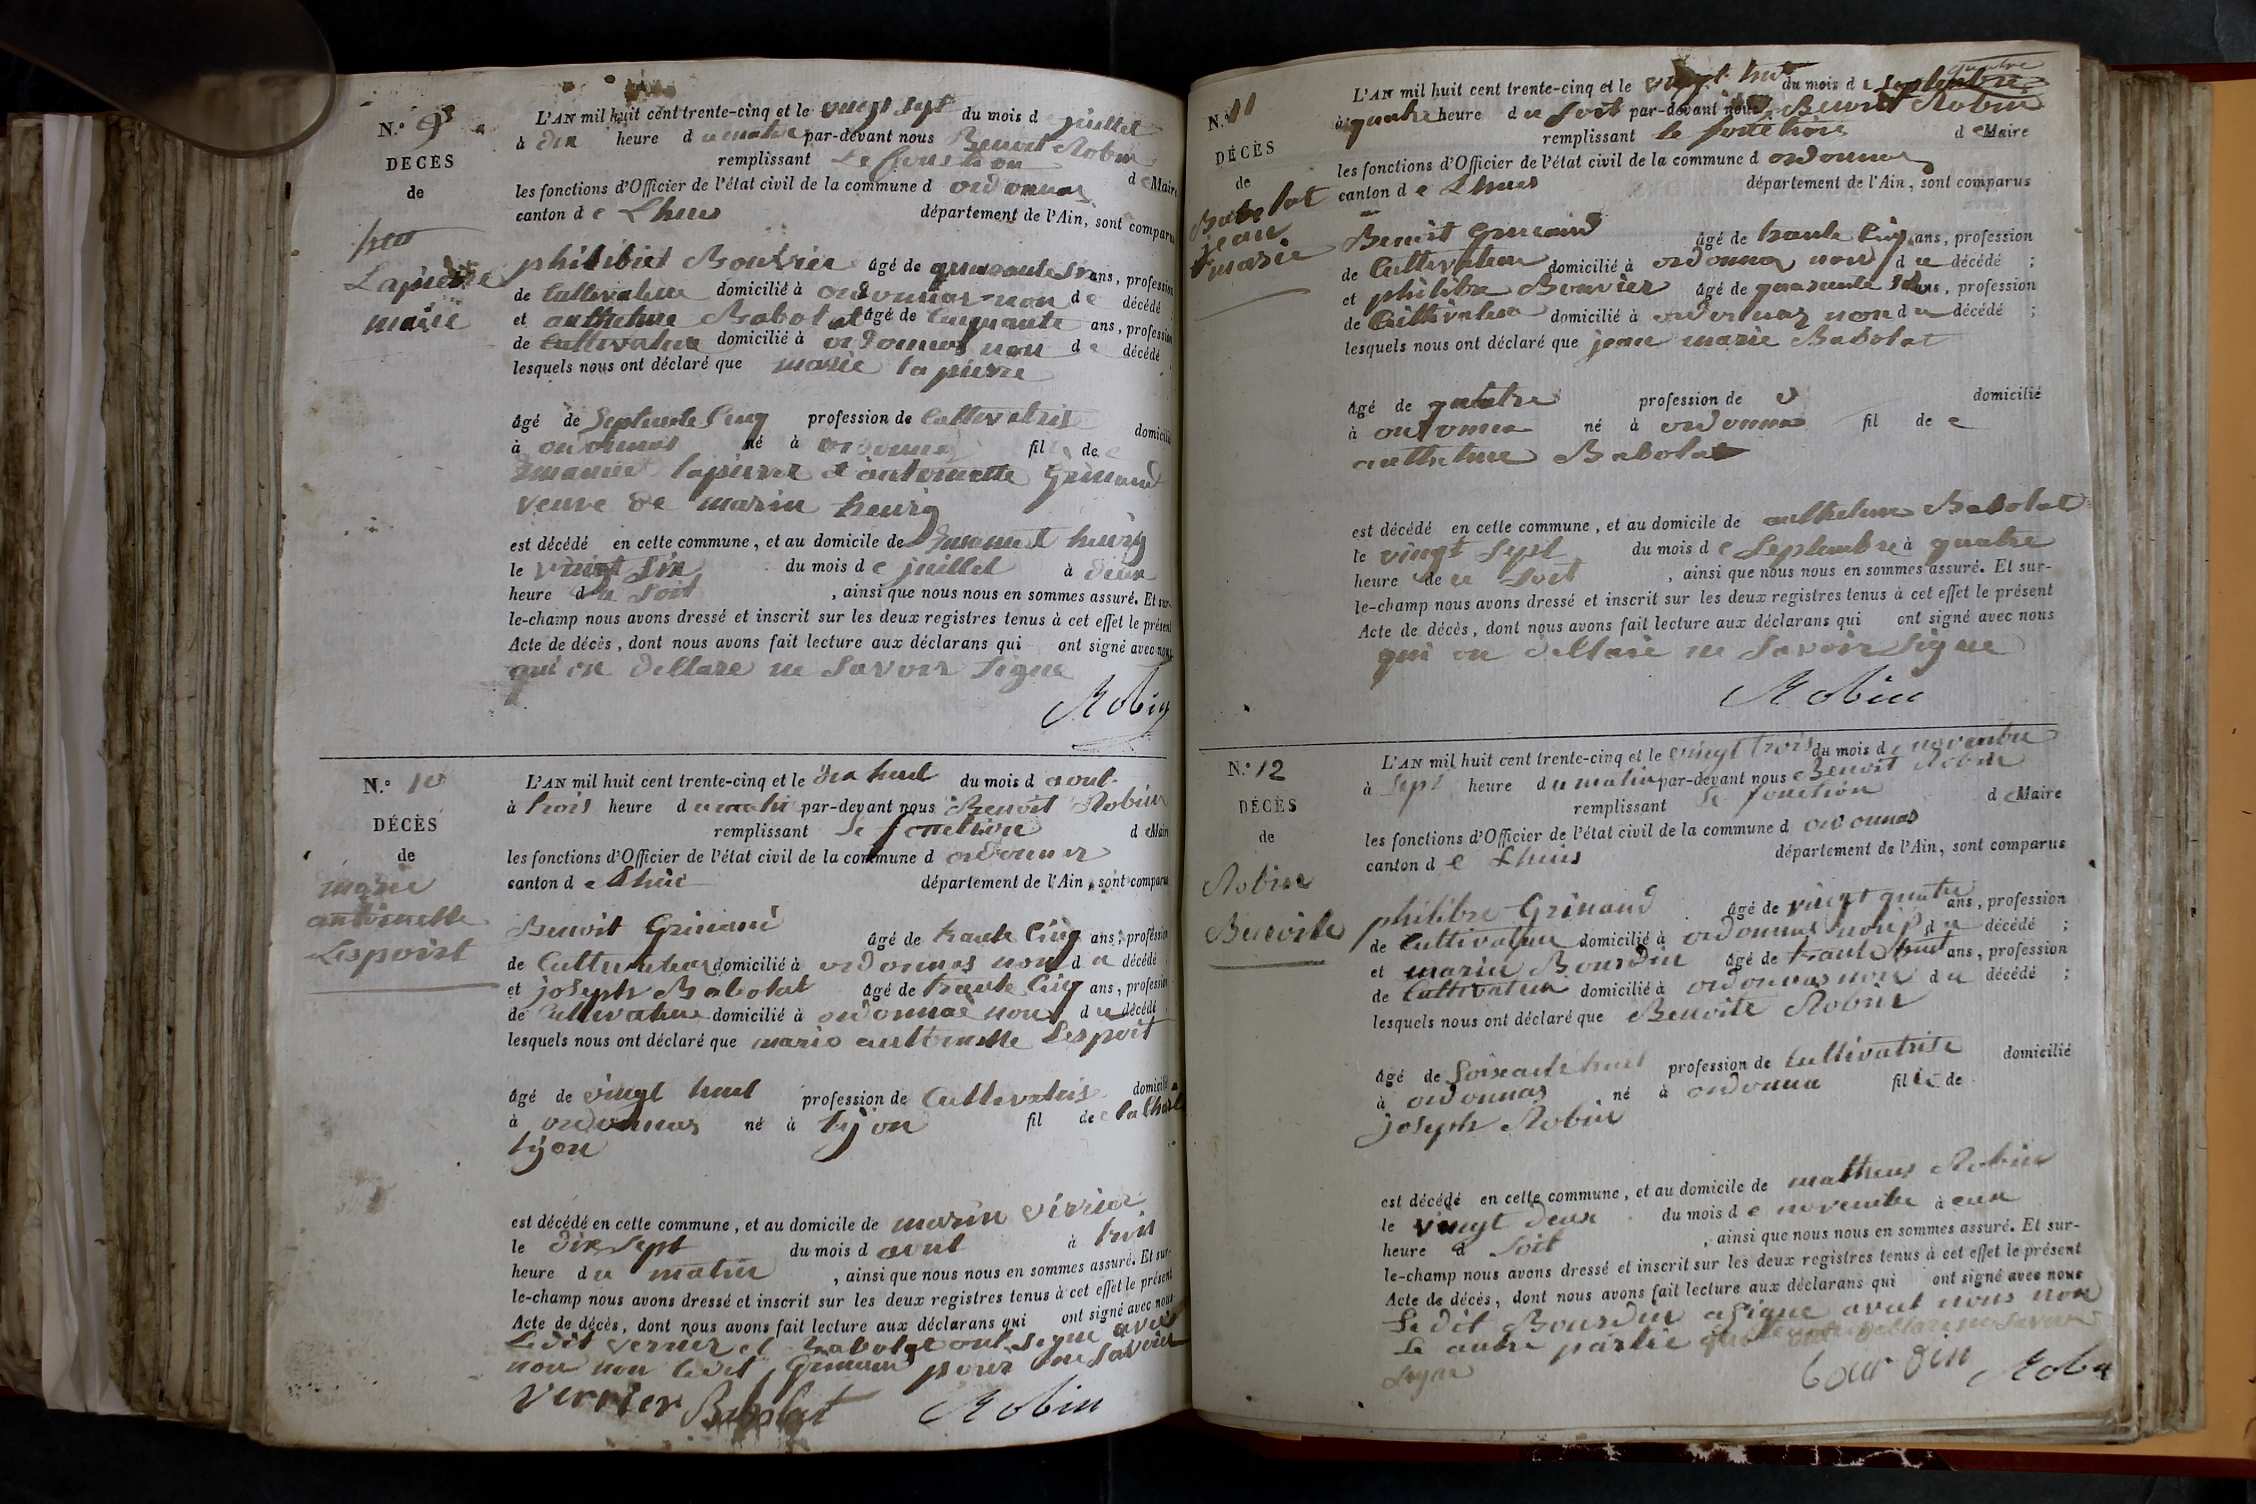 N.° 9
DÉCÈS
de
Lapierre
marie
L'AN mil huit cent trente-cinq et le vingt sept du mois de juillet
à dix heure du matin par-devant nous Benoit Robin
remplissant le fonction de Maire
les fonctions d'Officier de l'état civil de la commune d ordonnas
canton de Lhuis département de l'Ain, sont comparus
philibert Bouvier âgé de quarante six ans, profession
de Cultivateur domicilié à ordonnas non de décédé
et anthelme Babolat âgé de cinquante ans, profession
de Cultivateur domicilié à ordonnas non de décédé
lesquels nous ont déclaré que marie lapierre
âgé de Septente cinq profession de Cultivatris domicilié
à ordonnas né à ordonnas fil de
lapierre et antoinette Grinand
veuve de marin heurig
est décédé en cette commune, et au domicile de heurig
le vingt Six du mois de juillet à deux
heure du Soit, ainsi que nous nous en sommes assuré. Et sur-
le-champ nous avons dressé et inscrit sur les deux registres tenus à cet effet le présent
Acte de décès, dont nous avons fait lecture aux déclarans qui ont signé avec nous
qui on dellare ne Savoir Signe
Robin
N.° 10
DÉCÈS
de
marie
antoinette
Lespoirt
L'AN mil huit cent trente-cinq et le dix huit du mois d aout
à trois heure du matin par-devant nous Benoit Robin
remplissant le fonction de Maire
les fonctions d'Officier de l'état civil de la commune d ordonnas
canton de Lhuis département de l'Ain, sont comparus
Benoit Grinand âgé de trante Cinq ans, profession
de Cultivateur domicilié à ordonnas non du décédé
et joseph Babolat âgé de trante Cinq ans, profession
de Cultivateur domicilié à ordonnas non du décédé
lesquels nous ont déclaré que marie antoinette Lespoit
âgé de vingt huit profession de Cultivatris domicilié
à ordonnas né à lyon fil de la
lyon
est décédé en cette commune, et au domicile de marin verrier
le dix Sept du mois d aout à trois
heure du matin, ainsi que nous nous en sommes assuré. Et sur-
le-champ nous avons dressé et inscrit sur les deux registres tenus à cet effet le présent
Acte de décès, dont nous avons fait lecture aux déclarans qui ont signé avec nous
Ledit verrier et babolat ont signe avec
nou non ledit Grinand pour ne Savoir
verrier Babolat Robin
N.° 11
DÉCÈS
de
Babolat
jean
marie
L'AN mil huit cent trente-cinq et le vingt huit du mois de Septembre
quatre
à quatre heure du Soit par-devant nous Benoit Robin
remplissant le fonction de Maire
les fonctions d'Officier de l'état civil de la commune d ordonnas
canton de Lhuis département de l'Ain, sont comparus
Benoit Grinand âgé de trante Cinq ans, profession
de Cultivateur domicilié à ordonnas non du décédé ;
et philibre Bouvier âgé de quarante Six ans, profession
de Cultivateur domicilié à ordonnas non du décédé ;
lesquels nous ont déclaré que jean marie Babolat
âgé de quatre profession de domicilié
à ordonna né à ordonnas fil de
anthelme Babolat
est décédé en cette commune, et au domicile de anthelme Babolat
le vingt Sept du mois de Septembre à quatre
heure de u Soit, ainsi que nous nous en sommes assuré. Et sur-
le-champ nous avons dressé et inscrit sur les deux registres tenus à cet effet le présent
Acte de décès, dont nous avons fait lecture aux déclarans qui ont signé avec nous
qui on dellare ne Savoir Signe
Robin
N.° 12
DÉCÈS
de
Robin
Benoite
L'AN mil huit cent trente-cinq et le vingt trois du mois de novembre
à Sept heure du matin par-devant nous Benoit Robin
remplissant le fonction de Maire
les fonctions d'Officier de l'état civil de la commune d ordonnas
canton de Lhuis département de l'Ain, sont comparus
philibre Grinand âgé de vingt quatre ans, profession
de Cultivateur domicilié à ordonnas non du décédé ;
et marin Bourdin âgé de trante huit ans, profession
de Cultivateur domicilié à ordonnas non du décédé ;
lesquels nous ont déclaré que Benoite Robin
âgé de Soixante huit profession de Cultivatrise domicilié
à ordonnas né à ordonna fille de
joseph Robin
est décédé en cette commune, et au domicile de matheus Robin
le vingt deux du mois de novembre à
heure d Soit, ainsi que nous nous en sommes assuré. Et sur-
le-champ nous avons dressé et inscrit sur les deux registres tenus à cet effet le présent
Acte de décès, dont nous avons fait lecture aux déclarans qui ont signé avec nous
Le dit Bourdin a Signe avec nous non
Le autre partie dellare ne Savoir
Signe
bourdin Robin